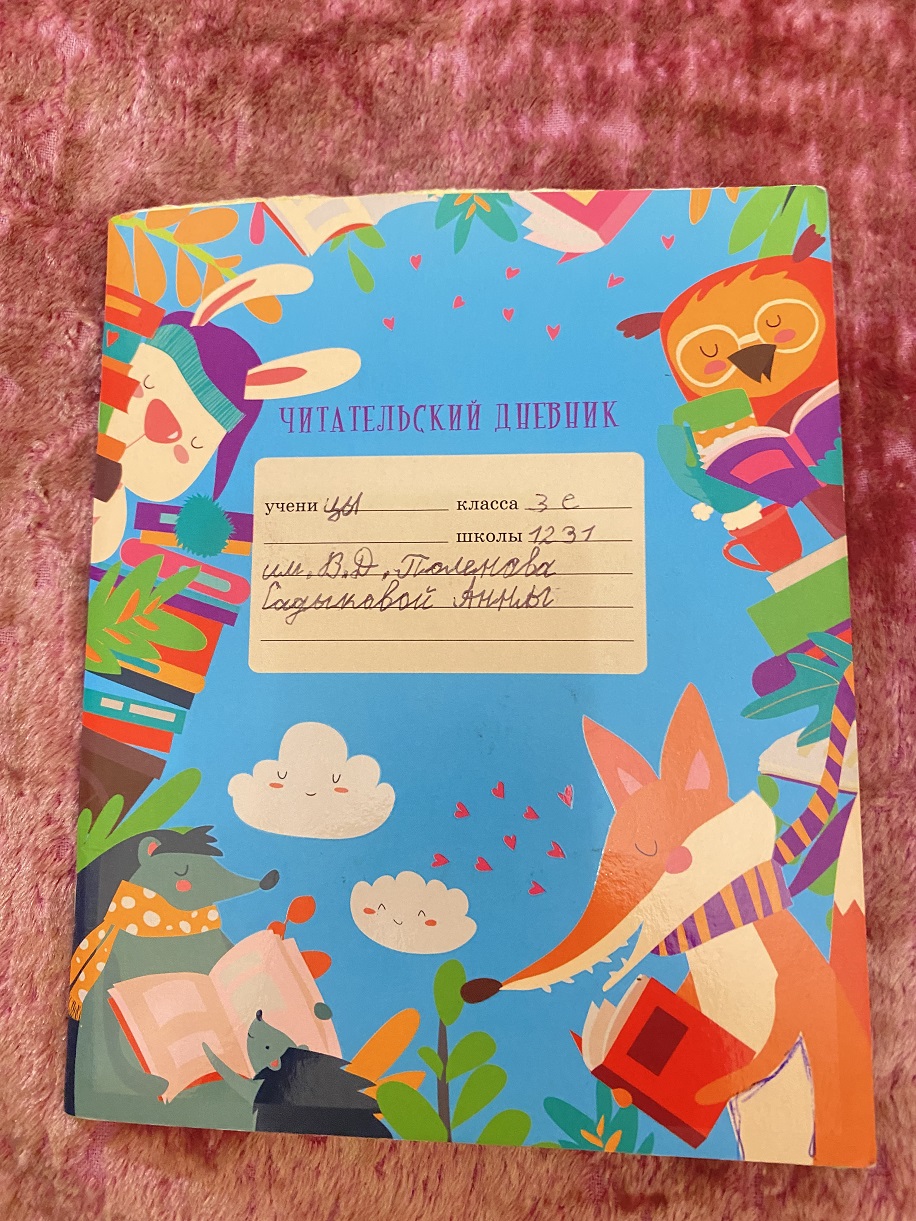 ЧИТАТЕЛЬСКИЙ ДНЕВНИК
учени цы класса 3 е
школы 1231
им. В.Д. Поленова
Садыковой Анны